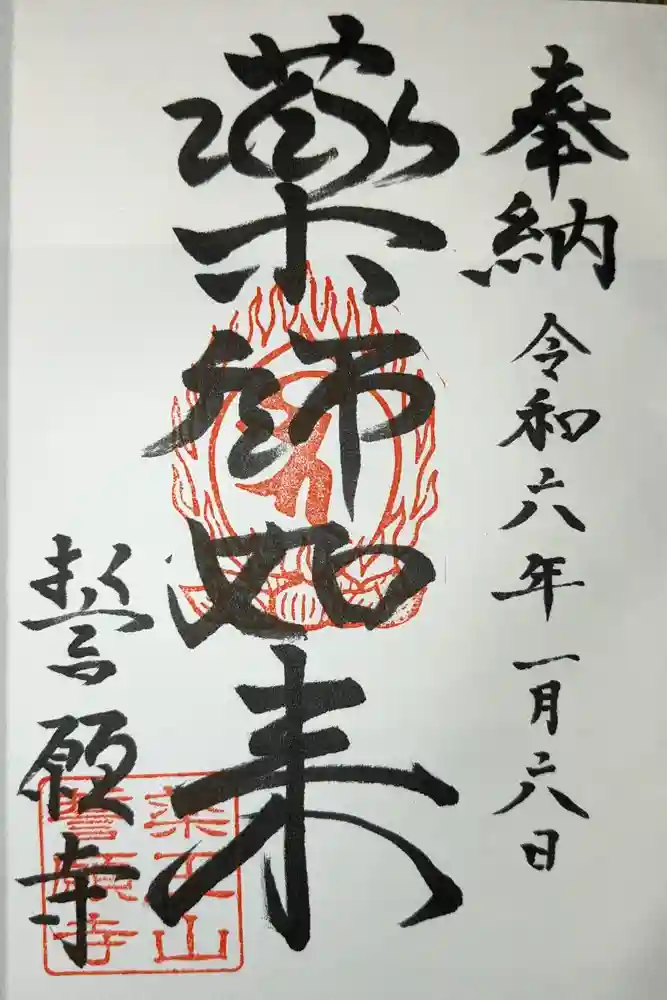 奉納 令和六年一月六日
薬師如来
誓願寺
薬王山
誓願寺